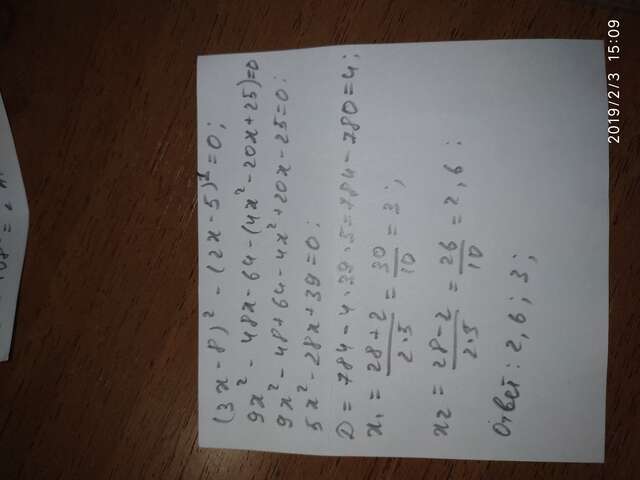 (3x-8)² - (2x-5)² = 0;
9x² - 48x - 64 - (4x² - 20x + 25) = 0
9x² - 48 + 64 - 4x² + 20x - 25 = 0;
5x² - 28x + 39 = 0;
D = 784 - 4·39·5 = 784 - 780 = 4;
x₁ = (28+2)/(2·5) = 30/10 = 3;
x₂ = (28-2)/(2·5) = 26/10 = 2,6;
Ответ: 2,6; 3;
2019/2/3 15:09